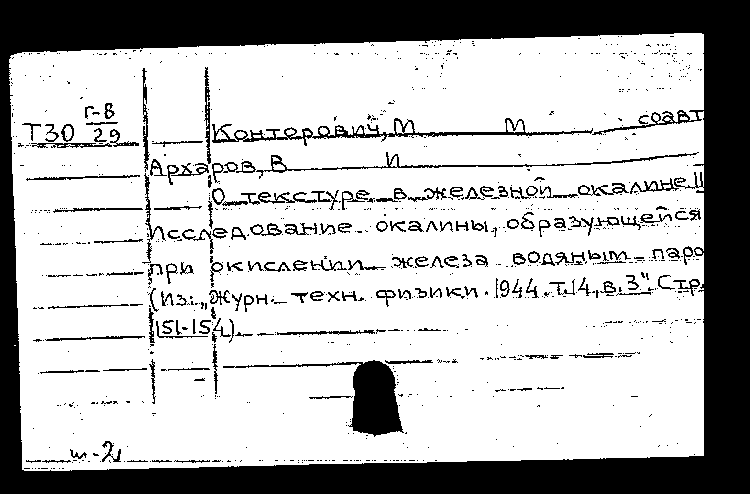 Г-В
Т30 29 Конторович, М М соавт
Архаров, В И
О текстуре в железной окалине II
Исследование окалины, образующейся
при окислении железа водяным паро
(Из: „Журн. техн. физики. 1944. Т. 14, в. 3". Стр.
151-154).
ш-2